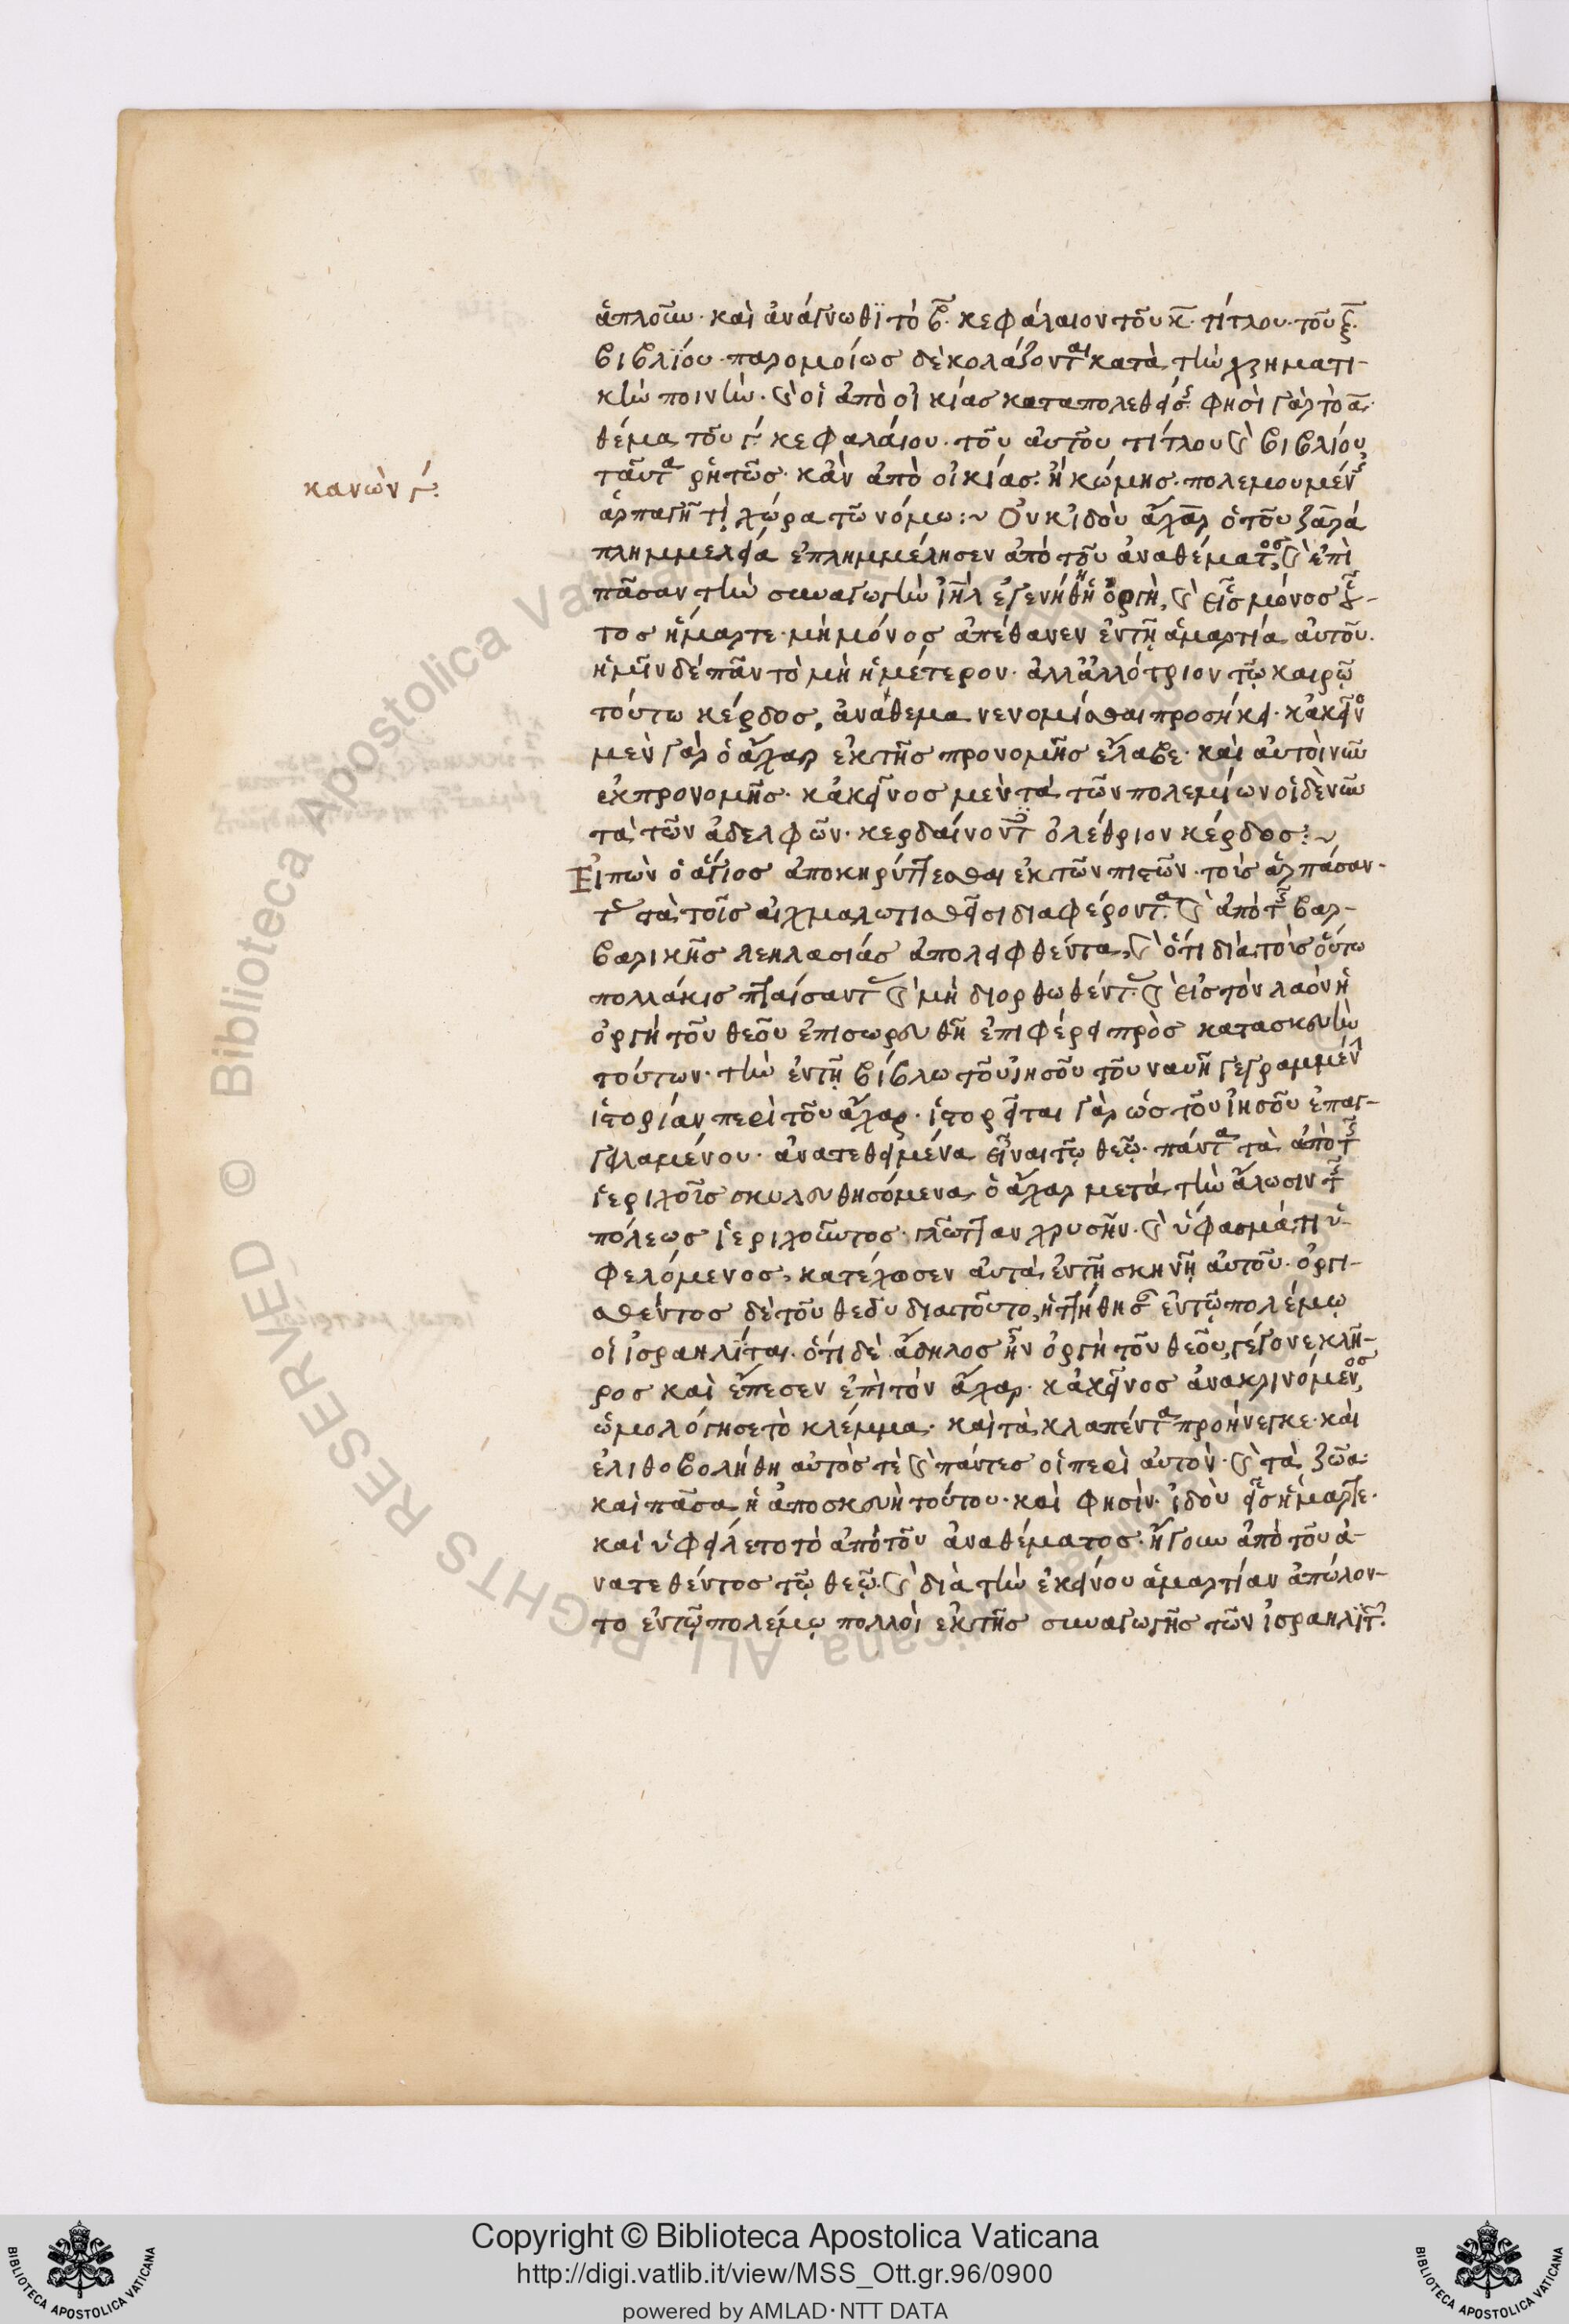 ἁπλοῦν· καὶ ἀνάγνωθϊ τὸ β̄· κεφάλαιον τοῦ κ̄· τίτλου· τοῦ ξ̄·
βιβλΐου· παρομοίως δὲ κολάζονται κατὰ τὴν χρηματι-
κὴν ποινήν· καὶ οἱ ἀπὸ οἰκίας καταπολεθείσης· φησὶ γὰρ τὸ ᾱ·
θέμα τοῦ γ̄· κεφαλαίου· τοῦ αὐτοῦ τίτλου καὶ βιβλίου
κανὼν γ·
ταῦτα ῥητῶς· κἂν ἀπὸ οἰκίας· ἢ κώμης· πολεμουμένης
ἁρπαγῆ τῆ χώρα τῶ νόμω:~ Οὐκ ἰδοὺ ἄχαρ ὁ τοῦ ζαρά
πλημμελεία ἐπλημμέλησεν ἀπὸ τοῦ ἀναθέματος, καὶ ἐπὶ
πᾶσαν τὴν συναγωγὴν ἰῆλ ἐγενήθη ἡ ὀργὴ, καὶ εἷς μόνος οὗ-
τος ἥμαρτε· μὴ μόνος ἀπέθανεν ἐν τῇ ἁμαρτία αὐτοῦ·
ἡμῖν δὲ πᾶν τὸ μὴ ἡμέτερον· ἀλλ' ἀλλότριον τῷ καιρῷ
τούτω κέρδος, ἀνάθεμα νενομίσθαι προσήκει· κἀκεῖνο
μὲν γὰρ ὁ ἄχαρ ἐκ τῆς προνομῆς ἔλαβε· καὶ αὐτοὶ νῦν
ἐκ προνομῆς· κἀκεῖνος μὲν τὰ τῶν πολεμίων οἱ δὲ νῦν
τὰ τῶν ἀδελφῶν· κερδαίνοντες ὀλέθριον κέρδος:~
Εἰπὼν ὁ ἅγιος ἀποκηρύττεσθαι ἐκ τῶν πιστῶν· τοὺς ἁρπάσαν-
τας τὰ τοῖς αἰχμαλωτισθεῖσι διαφέροντα· καὶ ἀπὸ τῆς βαρ-
βαρικῆς λεηλασίας ἀπολειφθέντα, καὶ ὅτι διὰ τοὺς οὕτω
πολλάκις πταίσαντας καὶ μὴ διορθωθέντας· καὶ εἰς τὸν λαὸν ἡ
ὀργὴ τοῦ θεοῦ ἐπισωρευθῆ ἐπιφέρει πρὸς κατασκευὴν
τούτων· τὴν ἐν τῇ βίβλω τοῦ ἰησοῦ τοῦ ναυῆ γεγραμμένην
ἱστορίαν περὶ τοῦ ἄχαρ· ἱστορεῖται γὰρ ὡς τοῦ ἰησοῦ ἐπαγ-
γειλαμένου· ἀνατεθειμένα εἶναι τῷ θεῷ· πάντα τὰ ἀπὸ τῆς
ἱεριχοῦς σκυλευθησόμενα, ὁ ἄχαρ μετὰ τὴν ἅλωσιν τῆς
πόλεως ἱεριχοῦντος· γλῶτταν χρυσῆν· καὶ ὑφασμάτιον ὑ-
φελόμενος, κατέχωσεν αὐτὰ ἐν τῇ σκηνῇ αὐτοῦ· ὀργι-
σθέντος δὲ τοῦ θεοῦ διὰ τοῦτο, ἡττήθησαν ἐν τῷ πολέμῳ
οἱ ἰσραηλῖται· ὅτι δὲ ἄδηλος ἦν ὀργὴ τοῦ θεοῦ, γέγονε κλῆ-
ρος καὶ ἔπεσεν ἐπὶ τὸν ἄχαρ· κἀκεῖνος ἀνακρινόμενος
ὡμολόγησε τὸ κλέμμα· καὶ τὰ κλαπέντα προήνεγκε· καὶ
ἐλιθοβολήθη αὐτός τε καὶ πάντες οἱ περὶ αὐτὸν· καὶ τὰ ζῶα
καὶ πᾶσα ἡ ἀποσκευὴ τούτου· καὶ φησὶν· ἰδοὺ εἷς ἥμαρτε·
καὶ ὑφείλετο τὸ ἀπὸ τοῦ ἀναθέματος· ἤγουν ἀπὸ τοῦ ἀ-
νατεθέντος τῷ θεῷ· καὶ διὰ τὴν ἐκείνου ἁμαρτίαν ἀπώλον-
το ἐν τῷ πολέμῳ πολλοὶ ἐκ τῆς συναγωγῆς τῶν ἰσραηλιτῶν·
© Biblioteca Apostolica Vaticana ALL RIGHTS RESERVED
Copyright © Biblioteca Apostolica Vaticana
http://digi.vatlib.it/view/MSS_Ott.gr.96/0900
powered by AMLAD·NTT DATA
BIBLIOTECA APOSTOLICA VATICANA
BIBLIOTECA APOSTOLICA VATICANA